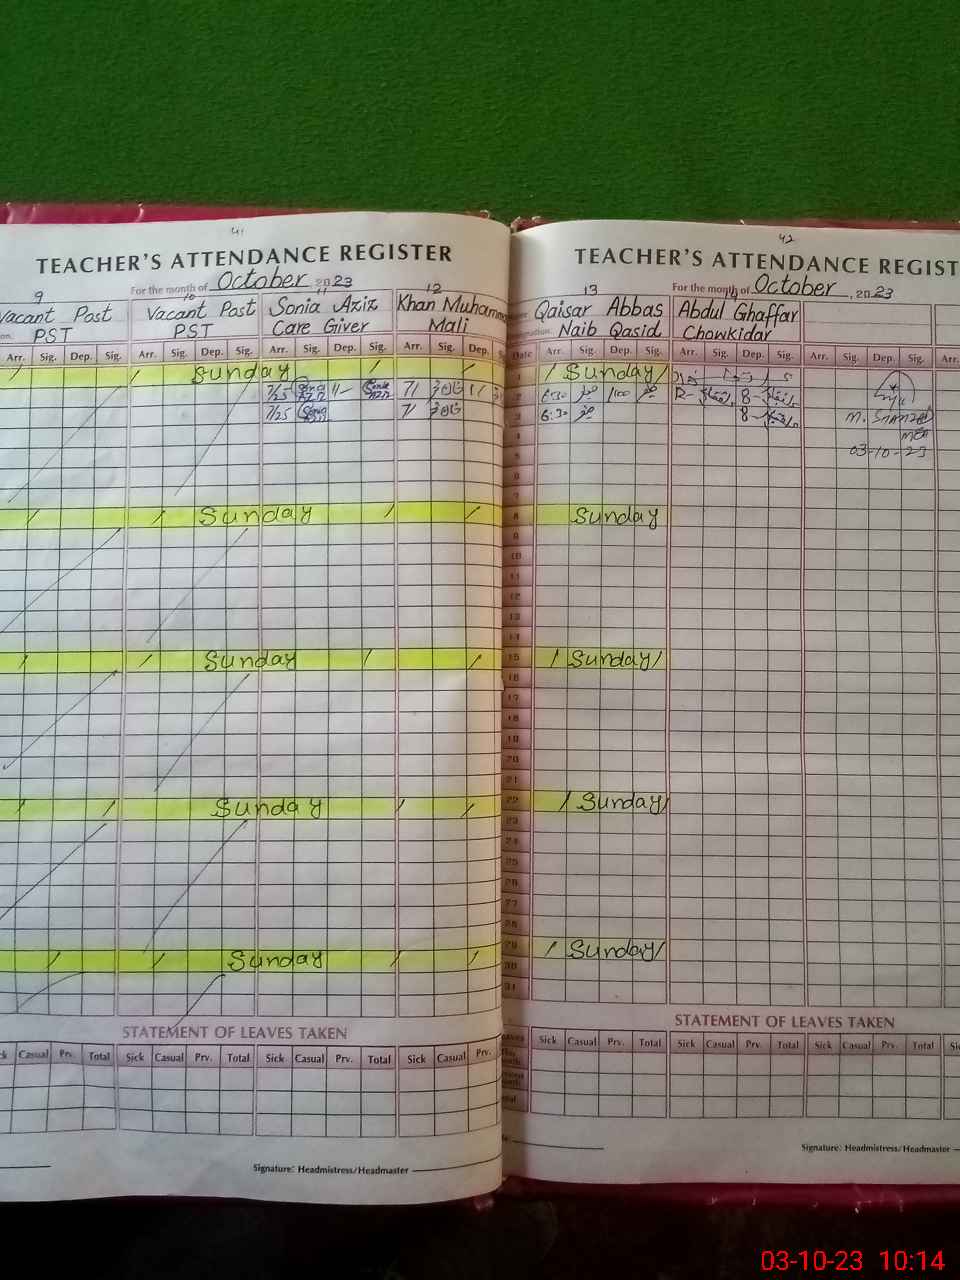 41
TEACHER'S ATTENDANCE REGISTER
For the month of October, 2023
9 10 11 12
Vacant Post Vacant Post Sonia Aziz Khan Muhammad
PST PST Care Giver Mali
Arr. Sig. Dep. Sig. Arr. Sig. Dep. Sig. Arr. Sig. Dep. Sig. Arr. Sig. Dep.
Sunday
7/25 11 7/
7/25 7/
Sunday
Sunday
Sunday
Sunday
STATEMENT OF LEAVES TAKEN
Casual Prv. Total Sick Casual Prv. Total Sick Casual Prv. Total Sick Casual Prv.
Signature: Headmistress/Headmaster
42
TEACHER'S ATTENDANCE REGIST
For the month of October, 2023
13 14
Qaisar Abbas Abdul Ghaffar
Naib Qasid Chowkidar
Date Arr. Sig. Dep. Sig. Arr. Sig. Dep. Sig. Arr. Sig. Dep. Sig. Arr.
1 Sunday
2 6:30 1:00 8
3 6:30 8
4
5 03-10-23
6
7
8 Sunday
9
10
11
12
13
14
15 Sunday
16
17
18
19
20
21
22 Sunday
23
24
25
26
27
28
29 Sunday
30
31
STATEMENT OF LEAVES TAKEN
Sick Casual Prv. Total Sick Casual Prv. Total Sick Casual Prv. Total
Signature: Headmistress/Headmaster
03-10-23 10:14